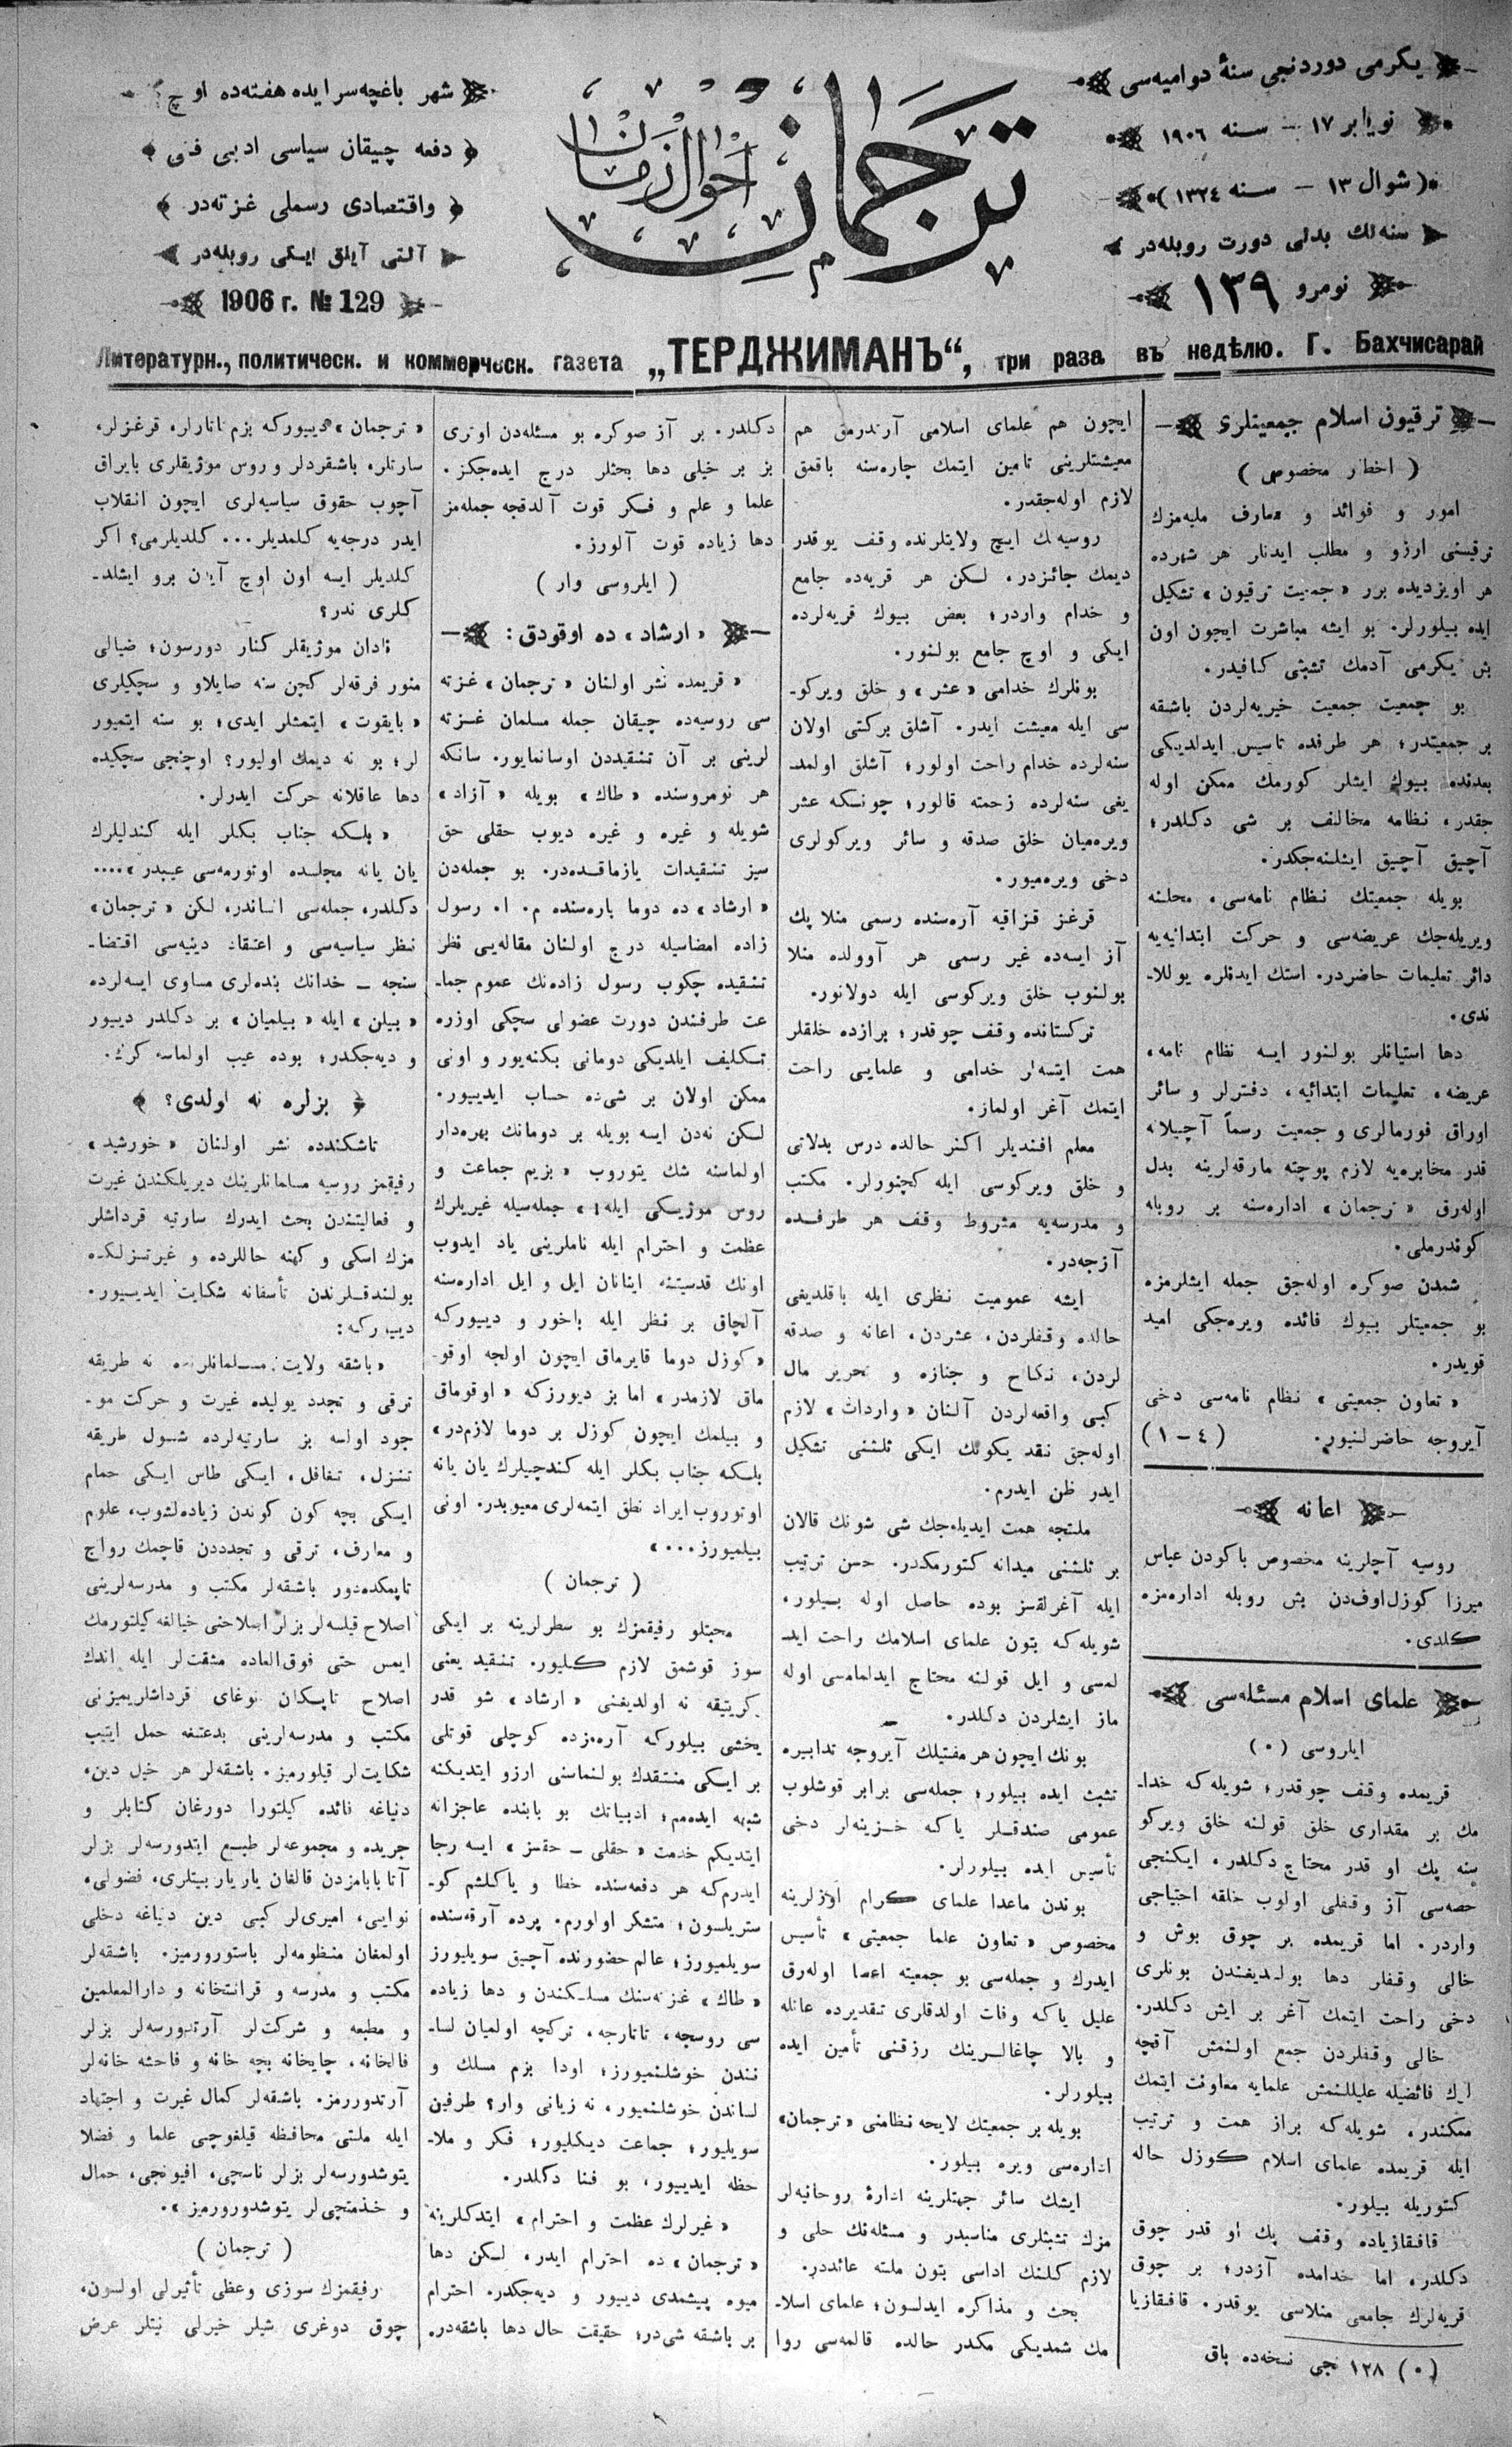 يكرمى دوردنجى سنهٔ دواميه‌سى
نويابر ١٧ – سنه ١٩٠٦
(شوال ١٣ – سنه ١٣٢٤)
سنه‌لك بدلى دورت روبله‌در
نومرو ١٣٩
ترجمان
احوال زمان
شهر باغچه‌سرايده هفته‌ده اوچ
دفعه چيقان سياسى ادبى فنى
واقتصادى رسملى غزته‌در
آلتى آيلق ايكى روبله‌در
1906 г. № 129
Литературн., политическ. и коммерческ. газета „ТЕРДЖИМАНЪ“, три раза въ недѣлю. Г. Бахчисарай
ترقيون اسلام جمعيتلرى
( اخطار مخصوص )
امور و فوائد و معارف مليه‌مزك
ترقيسنى ارزو و مطلب ايدنلر هر شهرده
هر اويزديده برر «جمعيت ترقيون» تشكيل
ايده بيلورلر. بو ايشه مباشرت ايچون اون
بش يكرمى آدمك تشبثى كافيدر.
بو جمعيت جمعيت خيريه‌لردن باشقه
بر جمعيتدر؛ هر طرفده تاسيس ايدلديكى
بعدنده بيوك ايشلر كورمك ممكن اوله
جقدر، نظامه مخالف بر شى دكلدر؛
آچيق آچيق ايشلنه‌جكدر.
بويله جمعيتك نظام نامه‌سى، محلنه
ويريله‌جك عريضه‌سى و حركت ابتدائيه‌يه
دائر تعليمات حاضردر. استك ايدنلره يوللا-
ندى.
دها استيانلر بولنور ايسه نظام نامه،
عريضه، تعليمات ابتدائيه، دفترلر و سائر
اوراق فورمالرى و جمعيت رسماً آچيلانه
قدر مخابره‌يه لازم پوچته مارقه‌لرينه بدل
اوله‌رق «ترجمان» اداره‌سنه بر روبله
كوندرملى.
شمدن صوكره اوله‌جق جمله ايشلرمزه
بو جمعيتلر بيوك فائده ويره‌جكى اميد
قويدر.
«تعاون جمعيتى» نظام نامه‌سى دخى
آيروجه حاضرلنيور. (٤–١)
اعانه
روسيه آچلرينه مخصوص باكودن عباس
ميرزا كوزل‌اوف‌دن بش روبله اداره‌مزه
كلدى.
علماى اسلام مسئله‌سى
ايلروسى (٠)
قريمده وقف چوقدر؛ شويله‌كه خدا-
مك بر مقدارى خلق قولنه خلق ويركو
سنه پك او قدر محتاج دكلدر، ايكنجى
حصه‌سى آز وقفلى اولوب خلقه احتياجى
واردر. اما قريمده بر چوق بوش و
خالى وقفلر دها بولنديغندن بونلرى
دخى راحت ايتمك آغر بر ايش دكلدر.
خالى وقفلردن جمع اولنمش آقچه
لرك فائضيله عليللنمش علمايه معاونت ايتمك
ممكندر، شويله‌كه براز همت و ترتيب
ايله قريمده علماى اسلام كوزل حاله
كتوريله بيلور.
قافقازياده وقف پك او قدر چوق
دكلدر، اما خدامده آزدر؛ بر چوق
قريه‌لرك جامعى منلاسى يوقدر. قافقازيا
(٠) ١٢٨ نجى نسخه‌ده باق
ايچون هم علماى اسلامى آرتدرمق هم
معيشتلرينى تامين ايتمك چاره‌سنه باقمق
لازم اوله‌جقدر.
روسيه‌نك ايچ ولايتلرنده وقف يوقدر
ديمك جائزدر، لكن هر قريه‌ده جامع
و خدام واردر؛ بعض بيوك قريه‌لرده
ايكى و اوچ جامع بولنور.
بونلرك خدامى «عشر» و خلق ويركو-
سى ايله معيشت ايدر. آشلق بركتى اولان
سنه‌لرده خدام راحت اولور؛ آشلق اولمد-
يغى سنه‌لرده زحمته قالور؛ چونكه عشر
ويره‌ميان خلق صدقه و سائر ويركولرى
دخى ويره‌ميور.
قرغز قزاقيه آره‌سنده رسمى منلا پك
آز ايسه‌ده غير رسمى هر آوولده منلا
بولنوب خلق ويركوسى ايله دولانور.
تركستانده وقف چوقدر؛ برازده خلقلر
همت ايتسه‌لر خدامى و علمايى راحت
ايتمك آغر اولماز.
معلم افنديلر اكثر حالده درس بدلاتى
و خلق ويركوسى ايله كچنورلر. مكتب
و مدرسه‌يه مشروط وقف هر طرفده
آزجه‌در.
ايشه عموميت نظرى ايله باقلديغى
حالده وقفلردن، عشردن، اعانه و صدقه
لردن، نكاح و جنازه و تحرير مال
كبى واقعه‌لردن آلنان «واردات» لازم
اوله‌جق نقد يكونك ايكى ثلثنى تشكيل
ايدر ظن ايدرم.
ملتجه همت ايديله‌جك شى شونك قالان
بر ثلثنى ميدانه كتورمكدر. حسن ترتيب
ايله آغرلقسز بوده حاصل اوله بيلور.
شويله‌كه بتون علماى اسلامك راحت ايد-
لمسى و ايل قولنه محتاج ايدلمامسى اوله
ماز ايشلردن دكلدر.
بونك ايچون هر مفتيلك آيروجه تدابيره
تشبث ايده بيلور؛ جمله‌سى برابر قوشلوب
عمومى صندقلر ياكه خزينه‌لر دخى
تأسيس ايده بيلورلر.
بوندن ماعدا علماى كرام اوزلرينه
مخصوص «تعاون علما جمعيتى» تأسيس
ايدرك و جمله‌سى بو جمعيته اعضا اوله‌رق
عليل ياكه وفات اولدقلرى تقديرده عائله
و بالا چاغالرينك رزقنى تأمين ايده
بيلورلر.
بويله بر جمعيتك لايحه نظامنى «ترجمان»
اداره‌سى ويره بيلور.
ايشك سائر جهتلرينه ادارهٔ روحانيه‌لر
مزك تشبثلرى مناسبدر و مسئله‌نك حلى و
لازم كلنك اداسى بتون ملته عائددر.
بحث و مذاكره ايدلسون؛ علماى اسلا-
مك شمديكى مكدر حالده قالمه‌سى روا
دكلدر. بر آز صوكره بو مسئله‌دن اوترى
بز بر خيلى دها بحثلر درج ايده‌جكز.
علما و علم و فكر قوت آلدقجه جمله‌مز
دها زياده قوت آلورز.
( ايلروسى وار )
«ارشاد» ده اوقودق:
«قريمده نشر اولنان «ترجمان» غزته
سى روسيه‌ده چيقان جمله مسلمان غزته
لرينى بر آن تنقيددن اوسانمايور. سانكه
هر نومروسنده «طاك» بويله «آزاد»
شويله و غيره و غيره ديوب حقلى حق
سيز تنقيدات يازماقده‌در. بو جمله‌دن
«ارشاد» ده دوما باره‌سنده م. ا. رسول
زاده امضاسيله درج اولنان مقاله‌يى نظر
تنقيده چكوب رسول زاده‌نك عموم جما-
عت طرفندن دورت عضولى سچكى اوزره
تكليف ايلديكى دومانى بكنه‌يور و اونى
ممكن اولان بر شى‌ده حساب ايدييور.
لكن نه‌دن ايسه بويله بر دومانك بهره‌دار
اولماسنه شك يتوروب «بزيم جماعت و
روس موژيكى ايله!» جمله‌سيله غيريلرك
عظمت و احترام ايله ناملرينى ياد ايدوب
اونك قدسيتنه اينانان ايل و ايل اداره‌سنه
آلچاق بر نظر ايله باخور و دييوركه
«كوزل دوما قايرماق ايچون اولجه اوقو-
ماق لازمدر» اما بز دييورزكه «اوقوماق
و بيلمك ايچون كوزل بر دوما لازم‌در»
بلكه جناب بكلر ايله كندچيلرك يان يانه
اوتوروب ايراد نطق ايتمه‌لرى معيوبدر. اونى
بيلميورز...»
( ترجمان )
محبتلو رفيقمزك بو سطرلرينه بر ايكى
سوز قوشمق لازم كليور. تنقيد يعنى
كريتيقه نه اولديغنى «ارشاد» شو قدر
يخشى بيلوركه آره‌مزده كوچلى قوتلى
بر ايكى منتقدك بولنماسنى ارزو ايتديكنه
شبهه ايده‌مم؛ ادبياتك بو بابنده عاجزانه
ايتديكم خدمت «حقلى – حقسز» ايسه رجا
ايدرم‌كه هر دفعه‌سنده خطا و ياكلشم كو-
ستريلسون؛ متشكر اولورم. پرده آرقه‌سنده
سويلميورز؛ عالم حضورنده آچيق سويليورز
«طاك» غزته‌سنك مسلكندن و دها زياده
سى روسجه، تاتارجه، تركچه اولميان لسا-
نندن خوشلنميورز؛ اودا بزم مسلك و
لساندن خوشلنميور، نه زيانى وار؟ طرفين
سويليور؛ جماعت ديكليور؛ فكر و ملا-
حظه ايدييور، بو فنا دكلدر.
«غيرلرك عظمت و احترام» ايتدكلرينه
«ترجمان» ده احترام ايدر، لكن دها
ميوه پيشمدى دييور و ديه‌جكدر. احترام
بر باشقه شى‌در؛ حقيقت حال دها باشقه‌در.
«ترجمان» دييوركه بزم تاتارلر، قرغزلر،
سارتلر، باشقردلر و روس موژيقلرى بايراق
آچوب حقوق سياسيه‌لرى ايچون انقلاب
ايدر درجه‌يه كلمديلر... كلديلرمى؟ اكر
كلديلر ايسه اون اوچ آيدن برو ايشلد-
كلرى ندر؟
نادان موژيقلر كنار دورسون؛ ضيالى
منور فرقه‌لر كچن سنه صايلاو و سچكيلرى
«بايقوت» ايتمشلر ايدى؛ بو سنه ايتميور
لر؛ بو نه ديمك اوليور؟ اوچنجى سچكيده
دها عاقلانه حركت ايدرلر.
«بلكه جناب بكلر ايله كندليلرك
يان يانه مجلسده اوتورمه‌سى عيبدر»....
دكلدر، جمله‌سى انساندر، لكن «ترجمان»
نظر سياسيه‌سى و اعتقاد دينيه‌سى اقتضا-
سنجه – خدانك بنده‌لرى مساوى ايسه‌لرده
«بيلن» ايله «بيلميان» بر دكلدر دييور
و ديه‌جكدر؛ بوده عيب اولماسه كرك.
بزلره نه اولدى؟
تاشكندده نشر اولنان «خورشيد»
رفيقمز روسيه مسلمانلرينك ديريلكندن غيرت
و فعاليتندن بحث ايدرك سارتيه قرداشلر
مزك اسكى و كهنه حاللرده و غيرتسزلكده
بولندقلرندن تأسفانه شكايت ايدييور.
دييوركه:
«باشقه ولايت مسلمانلرنده نه طريقه
ترقى و تجدد يولیده غيرت و حركت مو-
جود اولسه بز سارتيه‌لرده شول طريقه
تنزل، تغافل، ايسكى طاس ايسكى حمام
ايسكى بچه كون كوندن زياده‌لشوب، علوم
و معارف، ترقى و تجدددن قاچمك رواج
تاپمكده‌دور باشقه‌لر مكتب و مدرسه‌لرينى
اصلاح قيلسه‌لر بزلر اصلاحنى خيالغه كيلتورمك
ايمس حتى فوق‌العاده مشقت‌لر ايله اندك
اصلاح تاپكان نوغاى قرداشلريميزنى
مكتب و مدرسه‌لرينى بدعتغه حمل ايتيب
شكايت‌لر قيلورميز. باشقه‌لر هر خيل دين،
دنياغه فائده كيلتورا دورغان كتابلر و
جريده و مجموعه‌لر طبع ايتدورسه‌لر بزلر
آتا بابامزدن قالغان يار يار بيتلرى، فضولى،
نوايى، اميرى‌لر كبى دين دنياغه دخلى
اولمغان منظومه‌لر باستورورميز. باشقه‌لر
مكتب و مدرسه و قرائتخانه و دارالمعلمين
و مطبعه و شركت‌لر آرتدورسه‌لر بزلر
فالخانه، چايخانه بچه خانه و فاحشه خانه‌لر
آرتدوررمز. باشقه‌لر كمال غيرت و اجتهاد
ايله ملتى محافظه قيلغوچى علما و فضلا
يتوشدورسه‌لر بزلر ناسچى، افيونچى، حمال
و خدمتچى‌لر يتوشدورورميز».
( ترجمان )
رفيقمزك سوزى وعظى تأثيرلى اولسون،
چوق دوغرى شيلر خيرلى نيتلر عرض